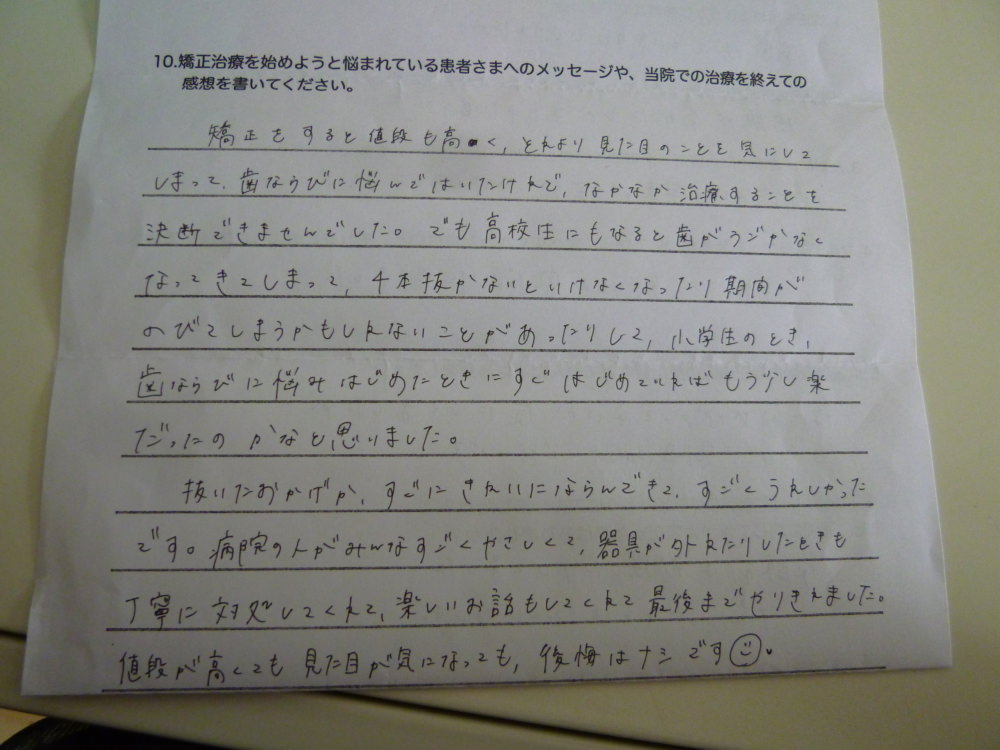 10.矯正治療を始めようと悩まれている患者さまへのメッセージや、当院での治療を終えての
感想を書いてください。
矯正をすると値段も高く、とれより見た目のことを気にして
しまって、歯ならびに悩んではいたけれど、なかなか治療することを
決断できませんでした。でも高校生にもなると歯がうごかなく
なってきてしまって、4本抜かないといけなくなったり期間が
のびてしまうかもしれないことがあったりして、小学生のとき、
歯ならびに悩みはじめたときにすぐはじめていればもう少し楽
だったのかなと思いました。
抜いたおかげか、すぐにきれいにならんできて、すごくうれしかった
です。病院の人がみんなすごくやさしくて、器具が外れたりしたときも
丁寧に対処してくれて、楽しいお話もしてくれて最後までやりきれました。
値段が高くても見た目が気になっても、後悔はナシです☺。